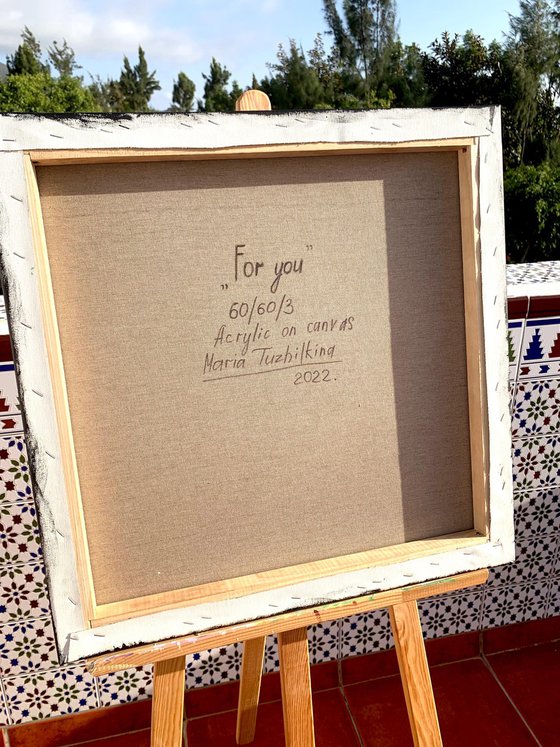 „For you”
60/60/3
Acrylic on canvas
Maria Tuzhilkina
2022.